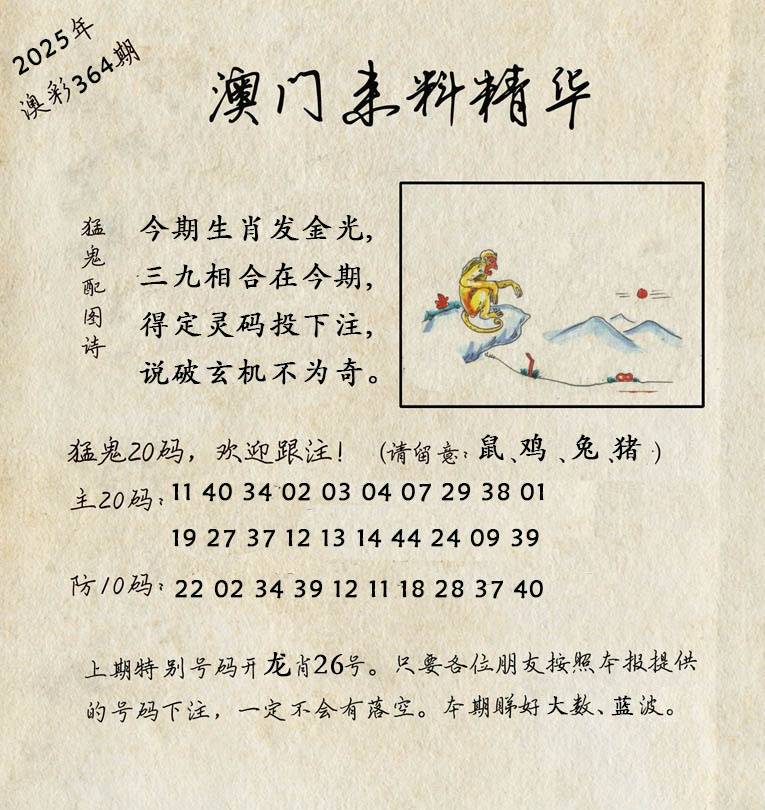 2025年
澳彩364期
澳门来料精华
猛鬼配图诗
今期生肖发金光,
三九相合在今期,
得定灵码投下注,
说破玄机不为奇。
猛鬼20码，欢迎跟注！（请留意：鼠、鸡、兔、猪）
主20码：11 40 34 02 03 04 07 29 38 01
19 27 37 12 13 14 44 24 09 39
防10码：22 02 34 39 12 11 18 28 37 40
上期特别号码开龙肖26号。只要各位朋友按照本报提供
的号码下注，一定不会有落空。本期睇好大数、蓝波。